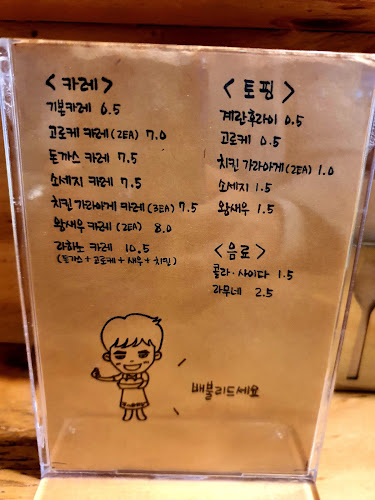 < 카레 >
기본카레 6.5
고로케 카레 (2EA) 7.0
돈까스 카레 7.5
소세지 카레 7.5
치킨 가라아게 카레 (3EA) 7.5
왕새우 카레 (2EA) 8.0
라하노 카레 10.5
(돈가스 + 고로케 + 새우 + 치킨)
< 토핑 >
계란후라이 0.5
고로케 0.5
치킨 가라아게 (2EA) 1.0
소세지 1.5
왕새우 1.5
< 음료 >
콜라 · 사이다 1.5
라무네 2.5
배불리드세요